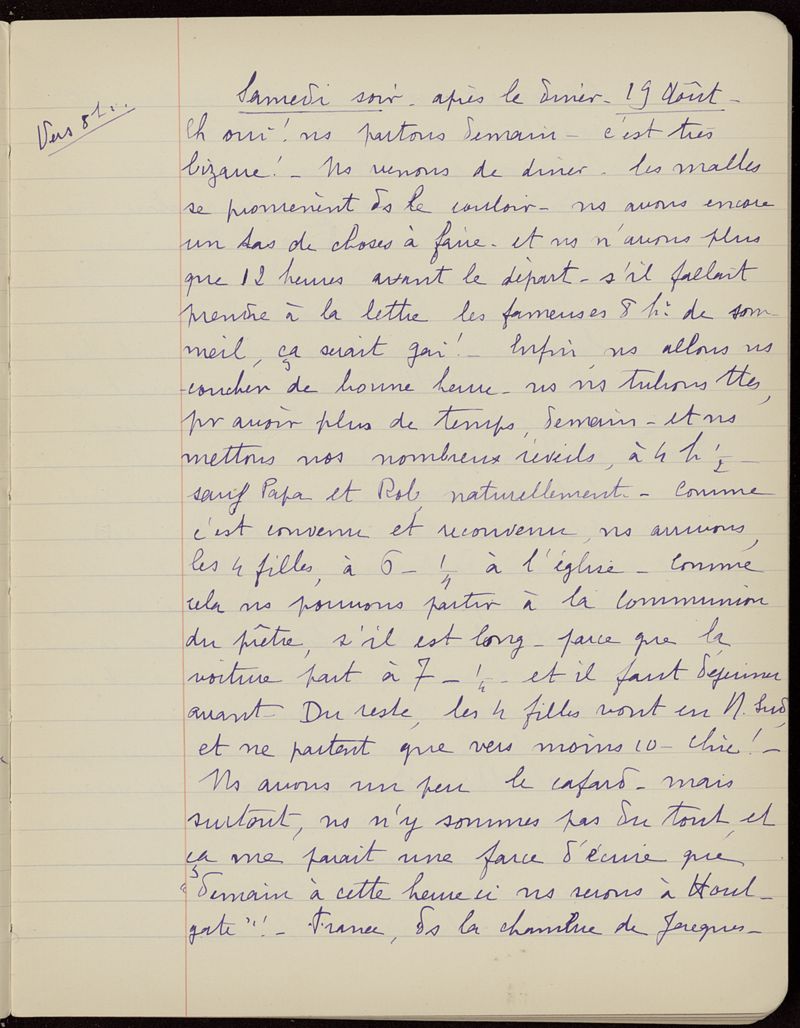 Vers 8h..
Samedi soir - après le diner - 19 Août -
Eh oui! ns partons demain - c'est très
bizarre! - Ns venons de diner - les malles
se promènent ds le couloir - ns avons encore
un tas de choses à faire - et ns n'avons plus
que 12 heures avant le départ - s'il fallait
prendre à la lettre les fameuses 8 hs de som-
meil, ça serait gai! - Enfin, ns allons ns
coucher de bonne heure - ns ns tubons ttes,
pr avoir plus de temps, demain - et ns
mettons nos nombreux réveils, à 4 h 1/2 -
sauf Papa et Rob, naturellement - Comme
c'est convenu et reconvenu, ns arrivons,
les 4 filles, à 6 - 1/4 à l'église - Comme
cela ns pouvons partir à la Communion
du prêtre, s'il est long - parce que la
voiture part à 7 - 1/4 - et il faut déjeuner
avant - Du reste, les 4 filles vont en N. Sud,
et ne partent que vers moins 10 - Chic! -
Ns avons un peu le cafard - mais
surtout, ns n'y sommes pas du tout, et
ça me parait une farce d'écrire que
"demain à cette heure ci ns serons à Houl-
gate"! - France, ds la chambre de Jacques -